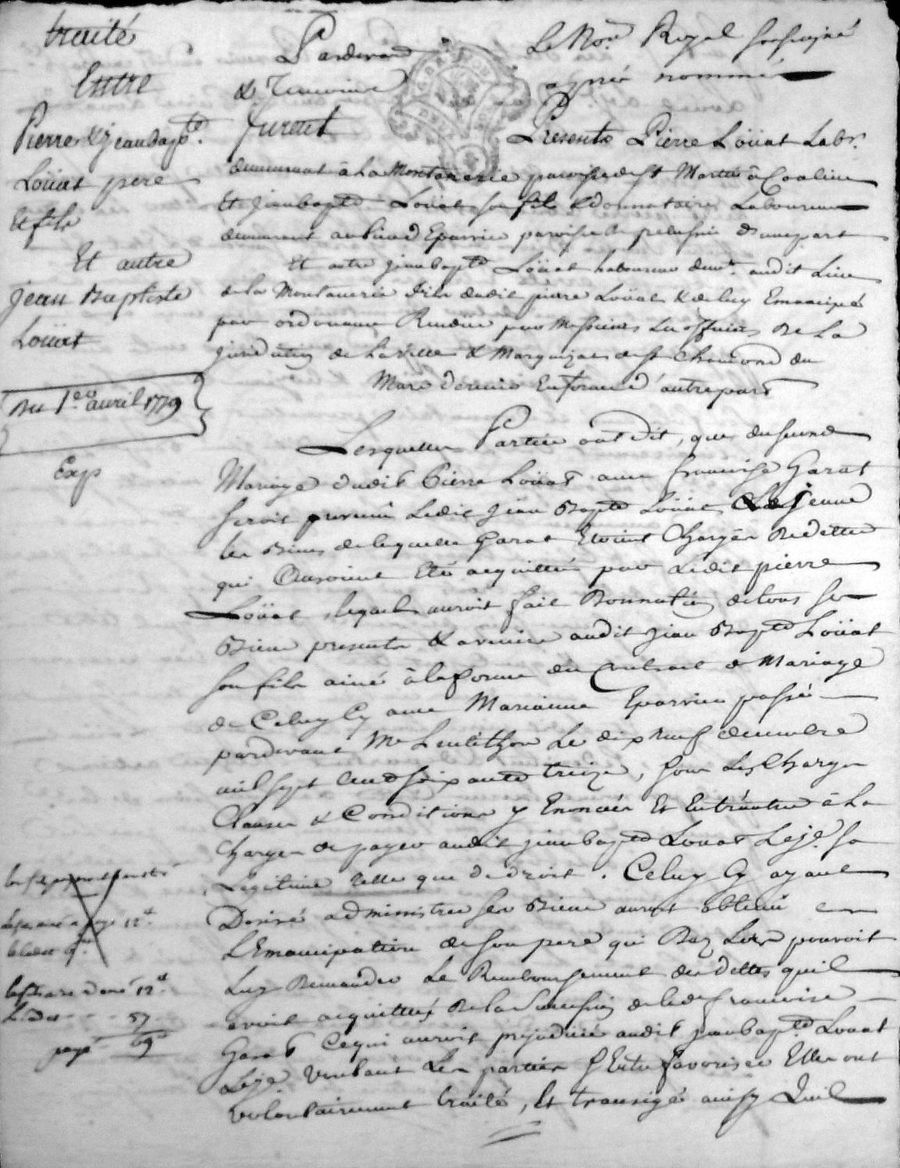 traité
Entre
Pierre & jean bap.te
Loüat pere
et fils
Et autre
Jean Baptiste
Loüat
Du 1.er avril 1779
Exp
Pardevant Le No.re Royal soussigné
& Temoins après nommés
furent Presents Pierre Loüat Lab.r
demeurant à La Montanerie paroisse de st Martin à Coalieu
Et jean bapt.e Loüat son fils & donnataire Laboureur
demeurant au lieu d Eparvier paroisse de d'une part
Et autre jean bapt.e Loüat laboureur dem.t audit Lieu
de la Montanerie fils dudit pierre Loüat & de luy Emancipé
par ordonnance Rendue par Messieurs Les officiers De La
juridiction de la ville & Marquisat de st Chamond du
Mars dernier En forme d'autre part
Lesquelles Parties ont dit, que du second
Mariage dudit Pierre Loüat avec françoise Garat
seroit provenu Ledit Jean Bapt.e Loüat Le Jeune
les Biens de laquelle Garat Etoient Chargés De dettes
qui Auroient Eté acquittées par Ledit pierre
Loüat, lequel auroit fait Donnation de tous ses
Biens presents & avenirs audit Jean Bapt.e Loüat
son fils ainé à la forme du Contrat de Mariage
de Celuy Cy avec Marianne Eparvier passé
pardevant Me le dix neuf decembre
mil sept Cent soixante treize, sous Les Charges
Clauses & Conditions y Enoncées Et Entr'autres à La
Charge de payer audit jean bapt.e Loüat Le je. sa
Legitime telle que de droit. Celuy Cy ayant
Desiré administrer ses Biens auroit obtenu
L'Emancipation de son pere qui Dez Lors pouvoit
Luy Demander Le Remboursement des dettes qu'il
avoit acquittées De la Succession de lad. françoise
Garat Ce qui auroit prejudicié audit jean bapt.e Loüat
Le je. voulant Les parties Elles ont
volontairement traité, Et transigé ainsy Qu'il
12.#
12.#
57
69